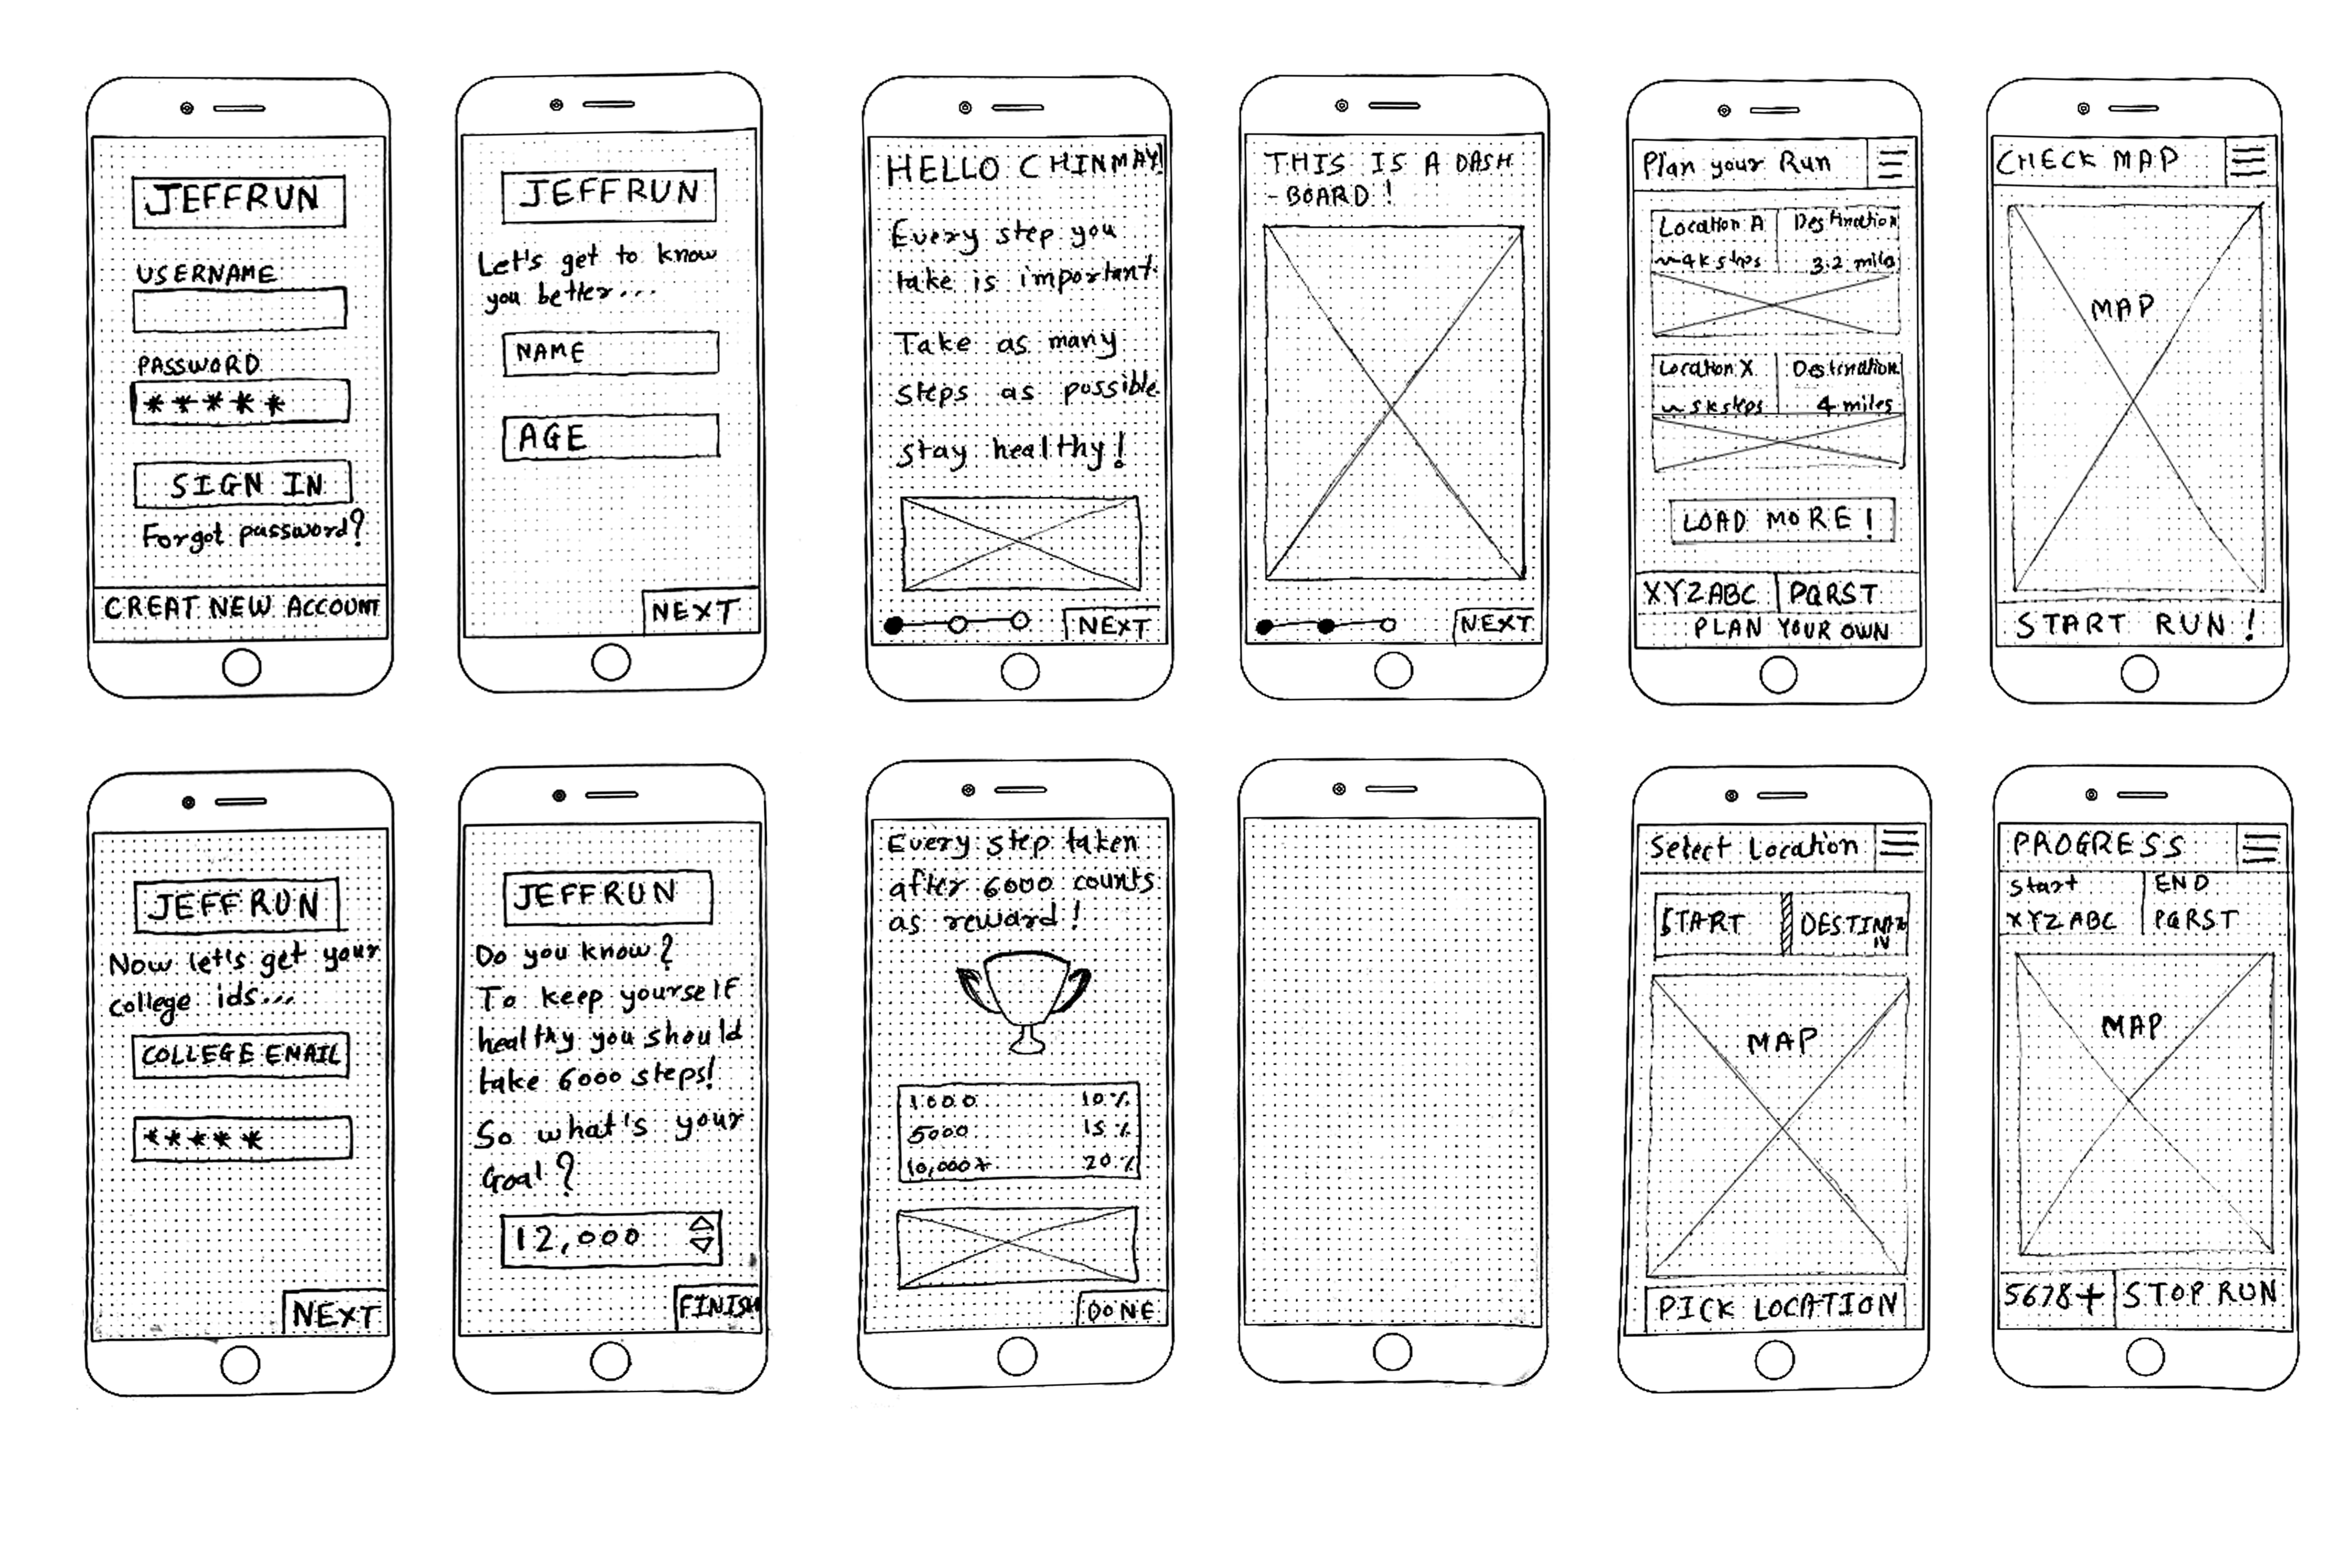 JEFFRUN
USERNAME
PASSWORD
*****
SIGN IN
Forgot password?
CREAT NEW ACCOUNT
JEFFRUN
Let's get to know
you better...
NAME
AGE
NEXT
HELLO CHINMAY!
Every step you
take is important.
Take as many
steps as possible
stay healthy!
NEXT
THIS IS A DASH
-BOARD!
NEXT
Plan your Run
Location A Destination
~4k steps 3.2 miles
Location X Destination
~5k steps 4 miles
LOAD MORE!
XYZABC PQRST
PLAN YOUR OWN
CHECK MAP
MAP
START RUN!
JEFFRUN
Now let's get your
college ids...
COLLEGE EMAIL
*****
NEXT
JEFFRUN
Do you know?
To keep yourself
healthy you should
take 6000 steps!
So what's your
Goal?
12,000
FINISH
Every step taken
after 6000 counts
as reward!
1000 10%
5000 15%
10,000+ 20%
DONE
Select Location
START DESTINATI
N
MAP
PICK LOCATION
PROGRESS
Start END
XYZABC PQRST
MAP
5678+ STOP RUN